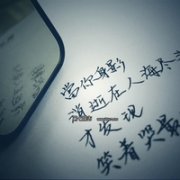 當你身影
消逝在人海尽
才发现
笑着哭最